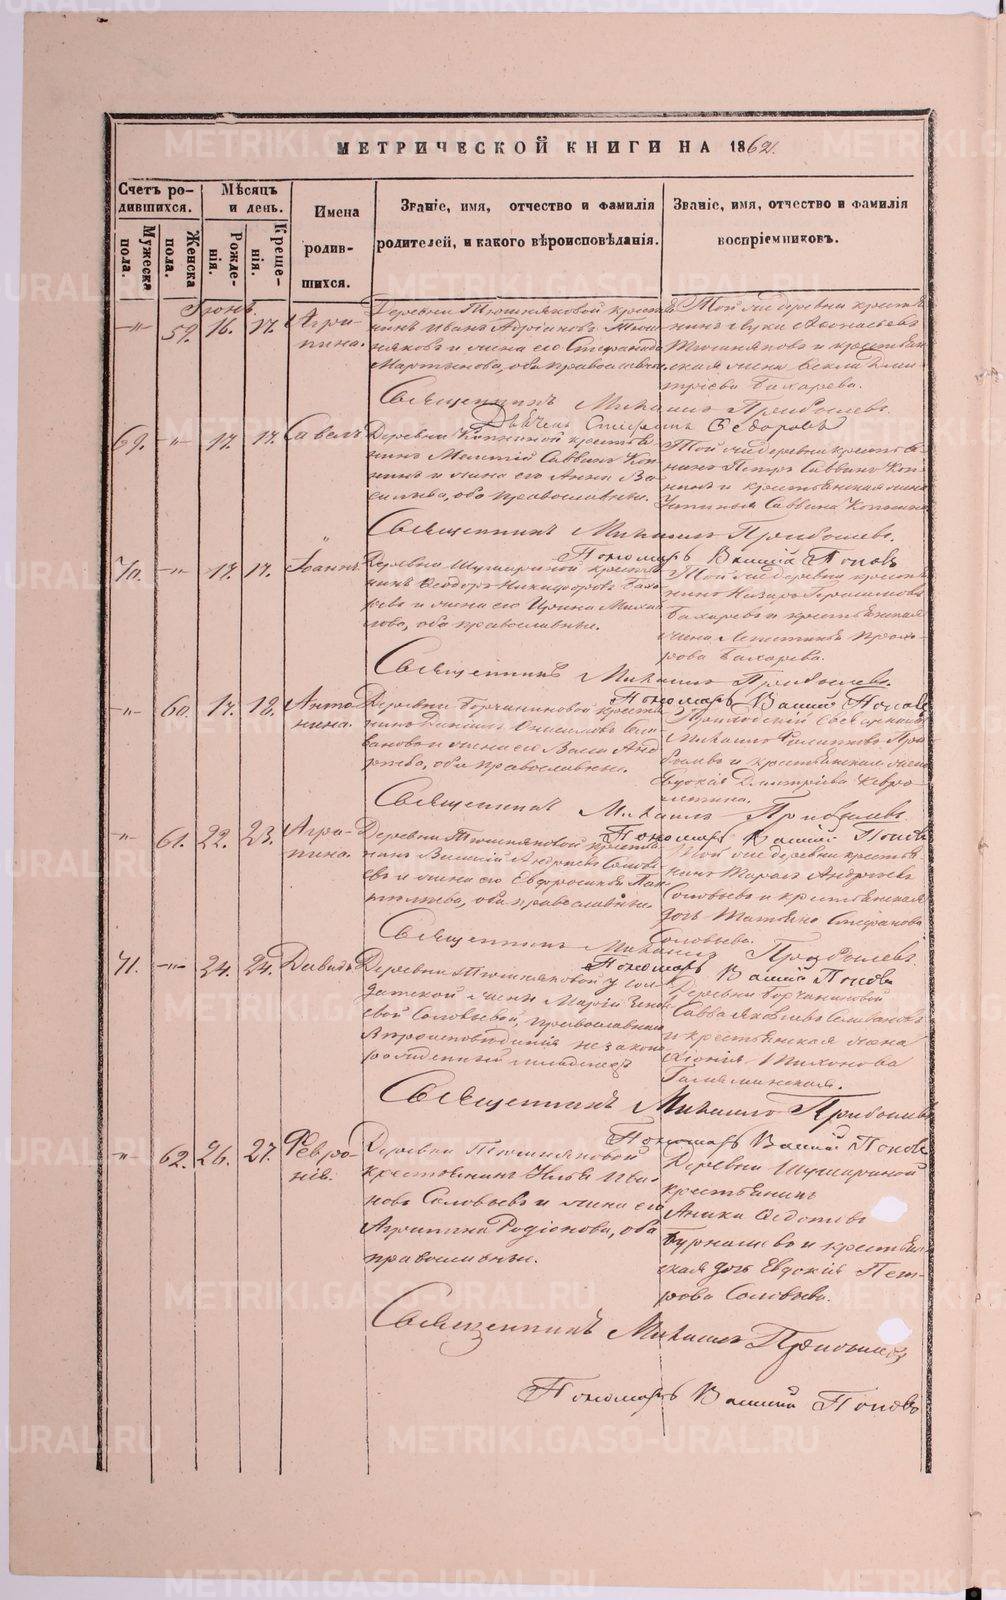 МЕТРИЧЕСКОЙ КНИГИ НА 1862
Счетъ ро-
дившихся.
Мужеска
пола.
Женска
пола.
Мѣсяцъ
и день.
Рожде-
нія.
Креще-
нія.
Имена
родив-
шихся.
Званіе, имя, отчество и фамилія
родителей, и какого вѣроисповѣданія.
Званіе, имя, отчество и фамилія
воспріемниковъ.
Іюнь.
-"- 59. 16. 17. Агри-
пина.
Деревни Тюшняковой кресть
нинъ Иванъ Адріановъ Тюш
няковъ и жена его Стефанида
Мартинова, оба православны.
Той же деревни кресть
нинъ Лука Афонасьевъ
Тюшняковъ и крестьян
ская жена Фекла Дми
тріева Бахарева.
Священникъ Михаилъ Прибылевъ.
Дьячекъ Стефанъ Ѳедоровъ
69. -"- 17. 17. Савелъ
нинъ Саввинъ
и жена его Анна Ва
сильева, оба православные.
Той же деревни крестья
нинъ Петръ Саввинъ
и крестьянская жена
Устинья Саввина
Священникъ Михаилъ Прибылевъ.
Пономарь Василій Поповъ
70. -"- 17. 17. Іоаннъ.
Деревни Шушариной кресть
нинъ Ѳеодоръ Никифоровъ Баха
ревъ и жена его Ирина Михай
лова, оба православные.
Той же деревни кресть
нинъ Назаръ Герасимовъ
Бахаревъ и крестьянская
жена Прохо-
рова Бахарева.
Священникъ Михаилъ Прибылевъ.
Пономарь Василій Поповъ
-"- 60. 17. 18. Анто
нина.
Деревни Горчаниновой кресть
нинъ Данилъ Онисимовъ Сели
вановъ и жена его Васса Анд
реева, оба православные.
Михаилъ Филиповъ При
былевъ и крестьянская жена
Евдокія Дмитріева Кевро-
летина.
Священникъ Михаилъ Прибылевъ.
Пономарь Василій Поповъ
-"- 61. 22. 23. Агри-
пина.
Деревни Тюшняковой кресть
нинъ Василій Андреевъ Соловь
евъ и жена его Евфросинья Пан
тилѣева, оба православные.
Той же деревни крестья
нинъ Тарасъ Андреевъ
Соловьевъ и крестьянская
дочь Татьяна Стефанова
Соловьева.
Священникъ Михаилъ Прибылевъ.
Пономарь Василій Поповъ
71. -"- 24. 24. Давидъ
Деревни Тюшняковой у сол
датской жены Маріи
евой Соловьевой, православнаго
вѣроисповѣданія незакон
рожденный младенецъ
Деревни Горчаниновой
Савва Яковлевъ Селивановъ
и крестьянская жена
Хіонія Тихонова
Галяминская.
Священникъ Михаилъ Прибылевъ
Пономарь Василій Поповъ
-"- 62. 26. 27. Февро-
нія.
Деревни Тюшняковой
крестьянинъ Илья Ива
новъ Соловьевъ и жена его
Агрипина Родіонова, оба
православные.
Деревни Шушариной
крестьянинъ
Аника Ѳедотовъ
Бурнашевъ и крестьян
ская дочь Евдокія Пет
рова Соловьева.
Священникъ Михаилъ Прибылевъ
Пономарь Василій Поповъ
METRIKI.GASO-URAL.RU